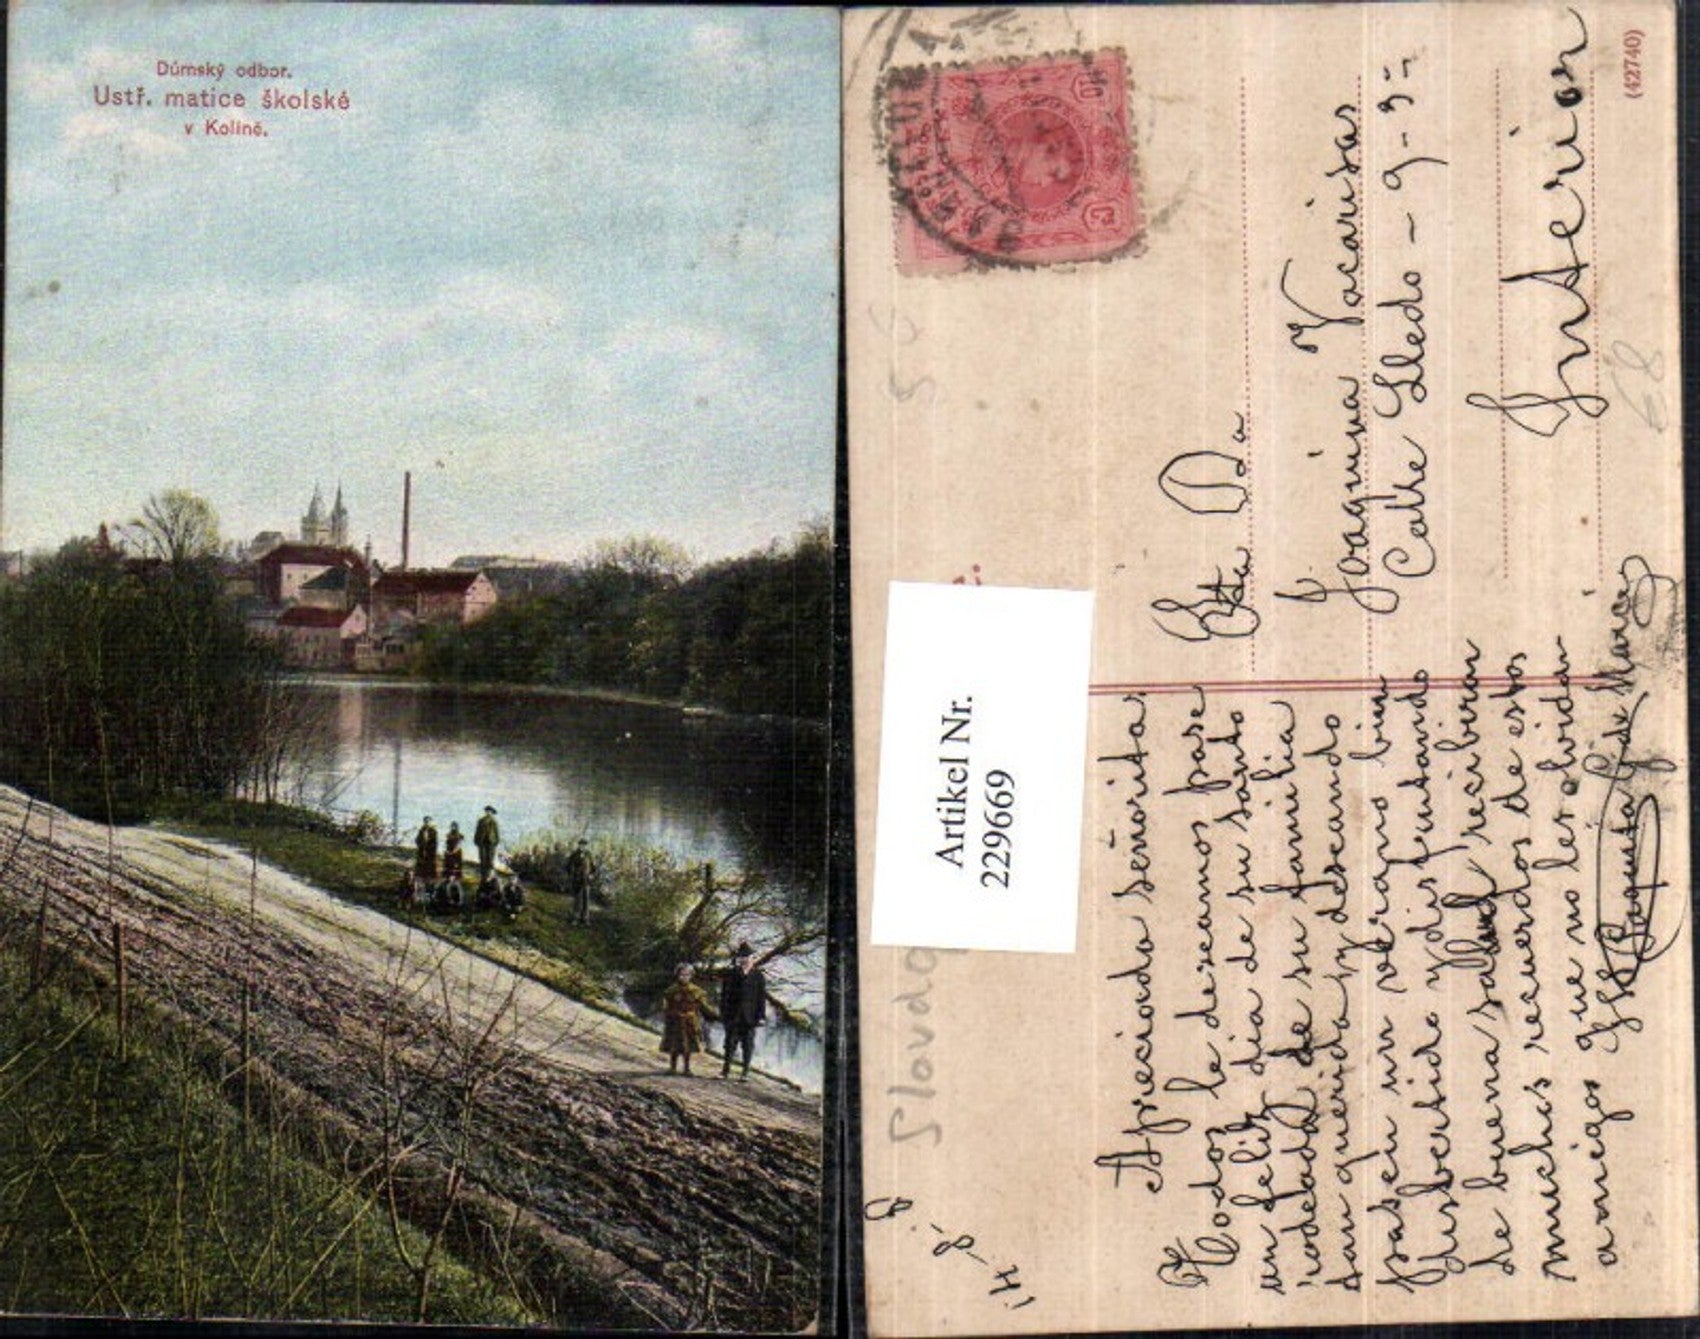 Důmský odbor.
Ustř. matice školské
v Kolíně.
(42740)
Artikel Nr.
229669
Srta Da
Joaquina Vacarisas
Calle Lledo - 9 - 3º
Interior
Apreciada señorita
todos le deseamos pase
un feliz dia de su santo
rodeada de su familia
tan querida y deseando
pasen un verano bien
y disfrutando
de buena salud reciviran
muchos recuerdos de estos
amigos que no les olvidan
Paquita G de